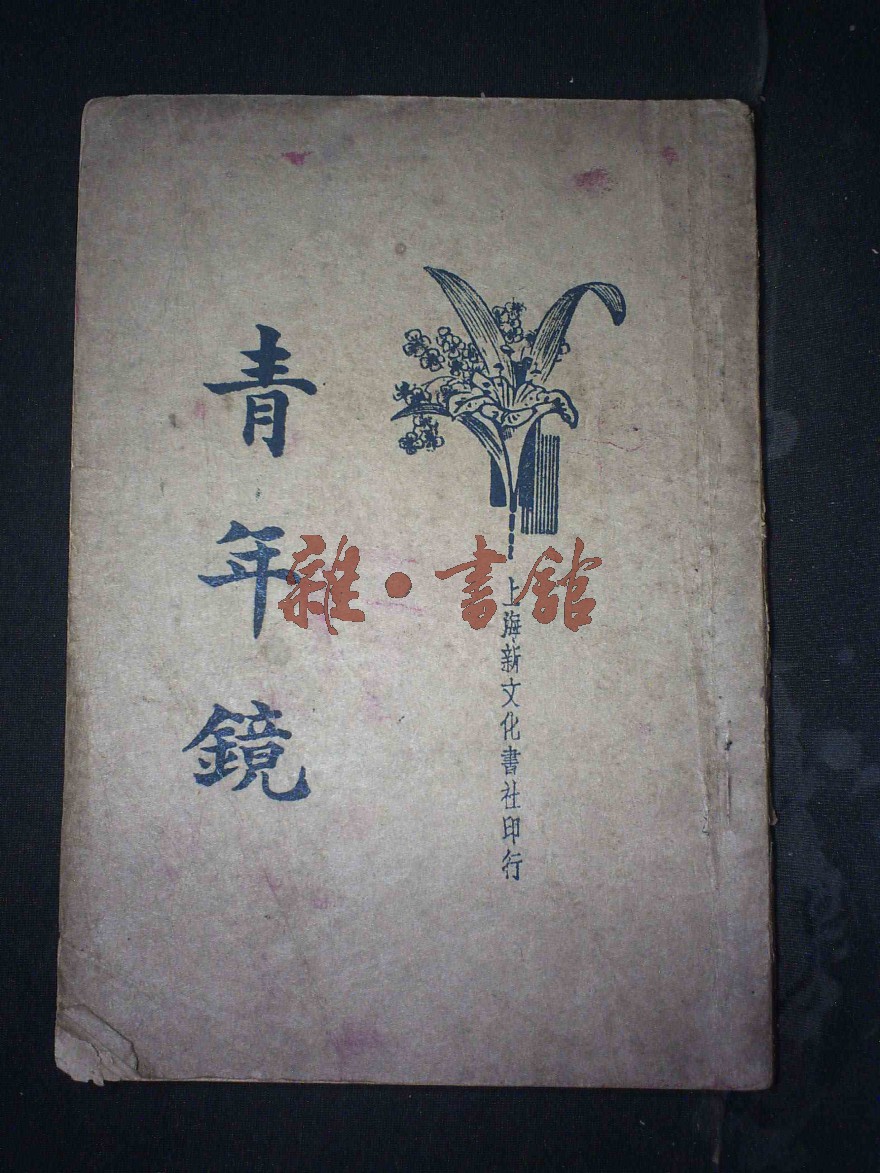 青年鏡
雜·書館
上海新文化書社印行